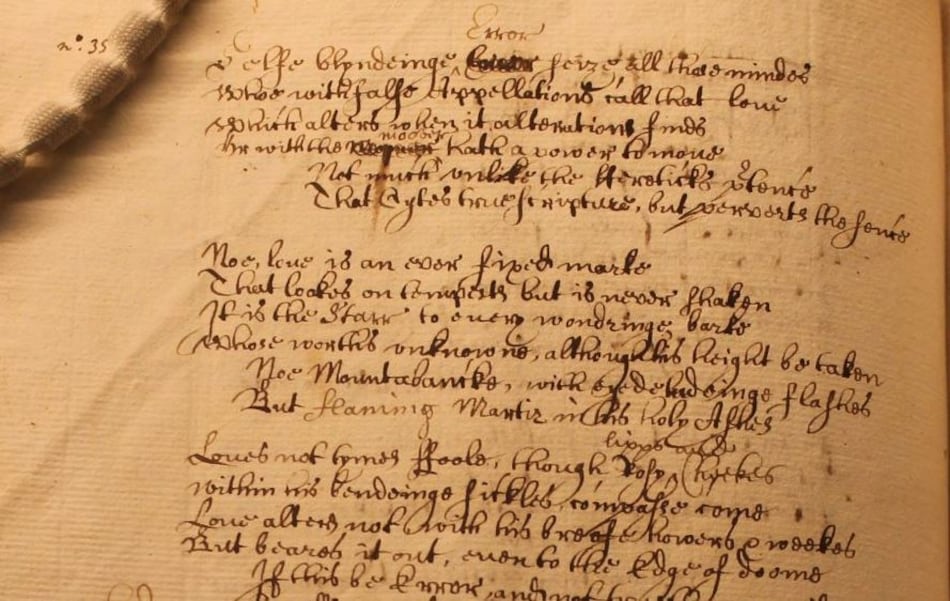 Error
n.º 35
Selfe blyndeinge seize all those mindes
Whoe with false Appellations call that loue
Which alters when it alterations finds
moover
Or with the hath a power to moue
Not much vnlike the Hereticks ptence
That Cytes true scripture, but perverts the sence
Noe, loue is an ever fixed marke
That lookes on tempests but is never shaken
It is the Starr to euery wondringe barke
Whose worth's vnknowne, although his height be taken
Noe Mountabancke, with eyedeludeinge flashes
But flaming Martir in his holy Ashes
lipps and
Loues not tymes ffoole, though Rosy Cheekes
within his bendeinge sickles, compasse come
Loue alters not with his breife howers & weekes
But beares it out, even to the Edge of doome
If this be Error, and not